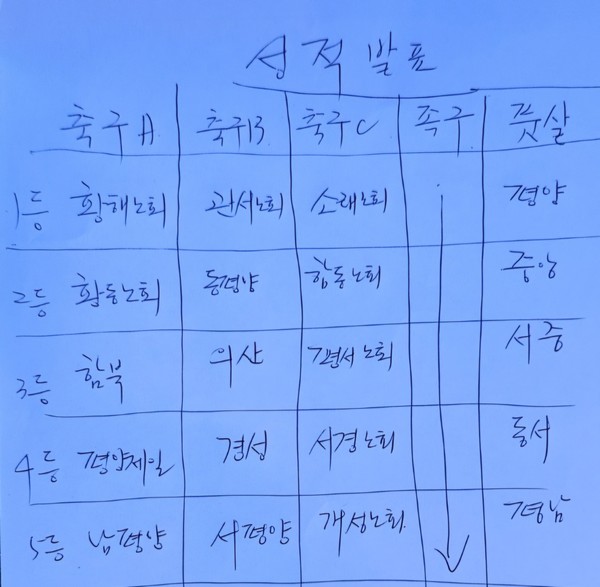 성적발표
축구A 축구B 축구C 족구 풋살
1등 황해노회 관서노회 소래노회 평양
2등 황동노회 동평양 함동노회 중앙
3등 함북 의산 평서노회 서중
4등 평양제일 경성 서경노회 동서
5등 남평양 서평양 개성노회 평남